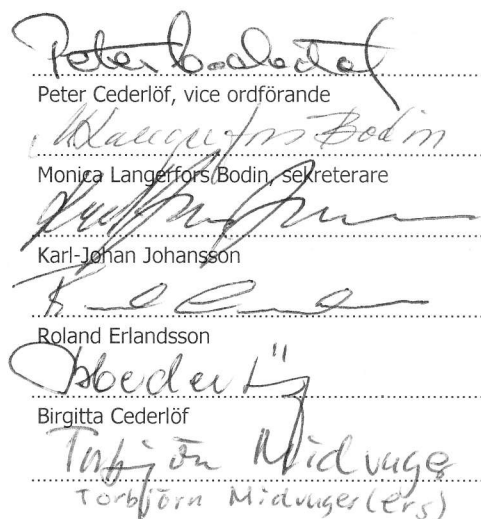 Peter Cederlöf
Peter Cederlöf, vice ordförande
MLangerfors Bodin
Monica Langerfors Bodin, sekreterare
Karl-Johan Johansson
Roland Erlandsson
BCederlöf
Birgitta Cederlöf
Torbjörn Midvager
Torbjörn Midvager (ers)